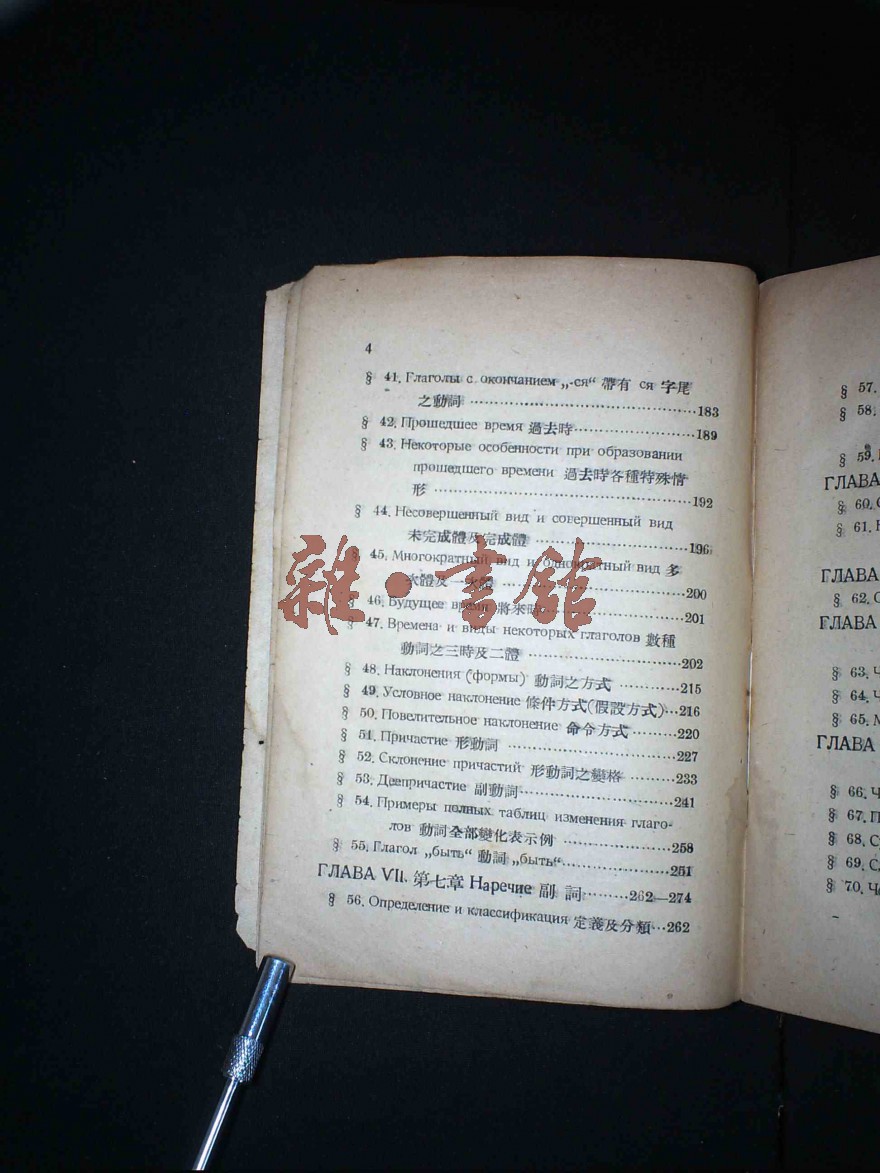 4
§ 41. Глаголы с окончанием „-ся“ 帶有 ся 字尾
之動詞 ··· 183
§ 42. Прошедшее время 過去時 ··· 189
§ 43. Некоторые особенности при образовании
прошедшего времени 過去時各種特殊情
形 ··· 192
§ 44. Несовершенный вид и совершенный вид
未完成體及完成體 ··· 196
§ 45. Многократный вид и однократный вид 多
次體及一次體 ··· 200
§ 46. Будущее время 將來時 ··· 201
§ 47. Времена и виды некоторых глаголов 數種
動詞之三時及二體 ··· 202
§ 48. Наклонения (формы) 動詞之方式 ··· 215
§ 49. Условное наклонение 條件方式(假設方式) ··· 216
§ 50. Повелительное наклонение 命令方式 ··· 220
§ 51. Причастие 形動詞 ··· 227
§ 52. Склонение причастий 形動詞之變格 ··· 233
§ 53. Деепричастие 副動詞 ··· 241
§ 54. Примеры полных таблиц изменения глаго-
лов 動詞全部變化表示例 ··· 258
§ 55. Глагол „быть“ 動詞 „быть“ ··· 251
ГЛАВА VII. 第七章 Наречие 副 詞 ··· 262—274
§ 56. Определение и классификация 定義及分類 ··· 262
雜·書館
§ 57.
§ 58.
§ 59.
ГЛАВА
§ 60.
§ 61.
ГЛАВА
§ 62.
ГЛАВА
§ 63.
§ 64.
§ 65.
ГЛАВА
§ 66.
§ 67.
§ 68.
§ 69.
§ 70.